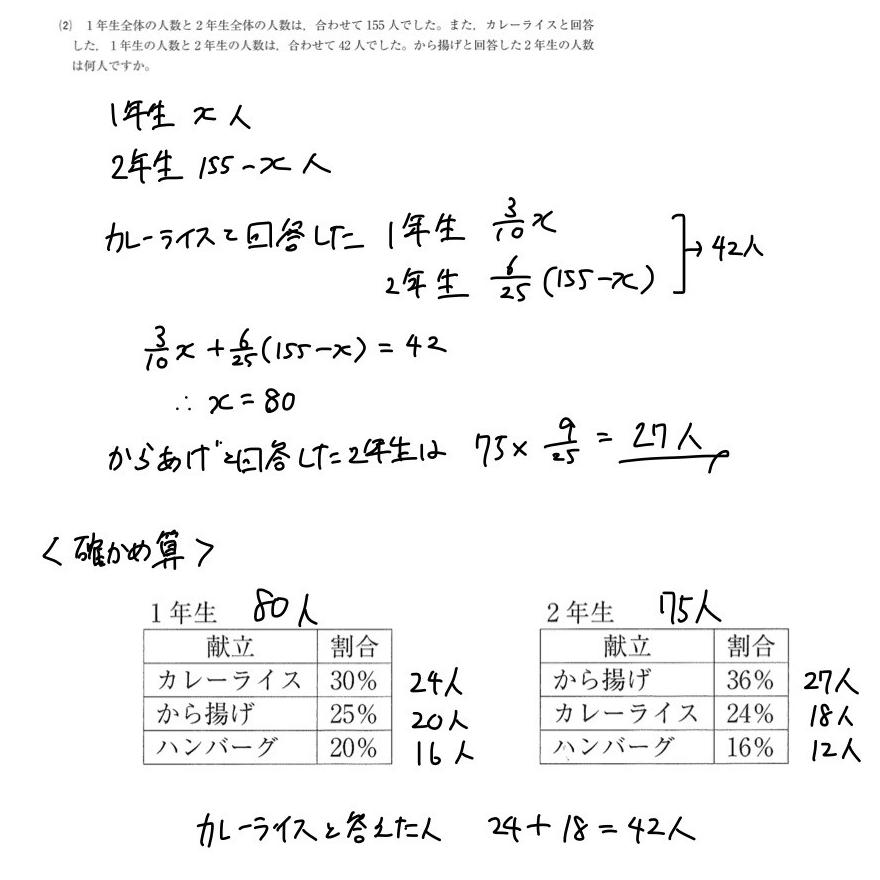 (2) 1年生全体の人数と2年生全体の人数は，合わせて155人でした。また，カレーライスと回答
した，1年生の人数と2年生の人数は，合わせて42人でした。から揚げと回答した2年生の人数
は何人ですか。
1年生 x人
2年生 155-x人
カレーライスと回答した 1年生 3/10 x
2年生 6/25 (155-x)
→42人
3/10 x + 6/25 (155-x) = 42
∴ x = 80
からあげと回答した2年生は 75× 9/25 = 27人
<確かめ算>
1年生 80人
献立 割合
カレーライス 30% 24人
から揚げ 25% 20人
ハンバーグ 20% 16人
2年生 75人
献立 割合
から揚げ 36% 27人
カレーライス 24% 18人
ハンバーグ 16% 12人
カレーライスと答えた人 24+18=42人